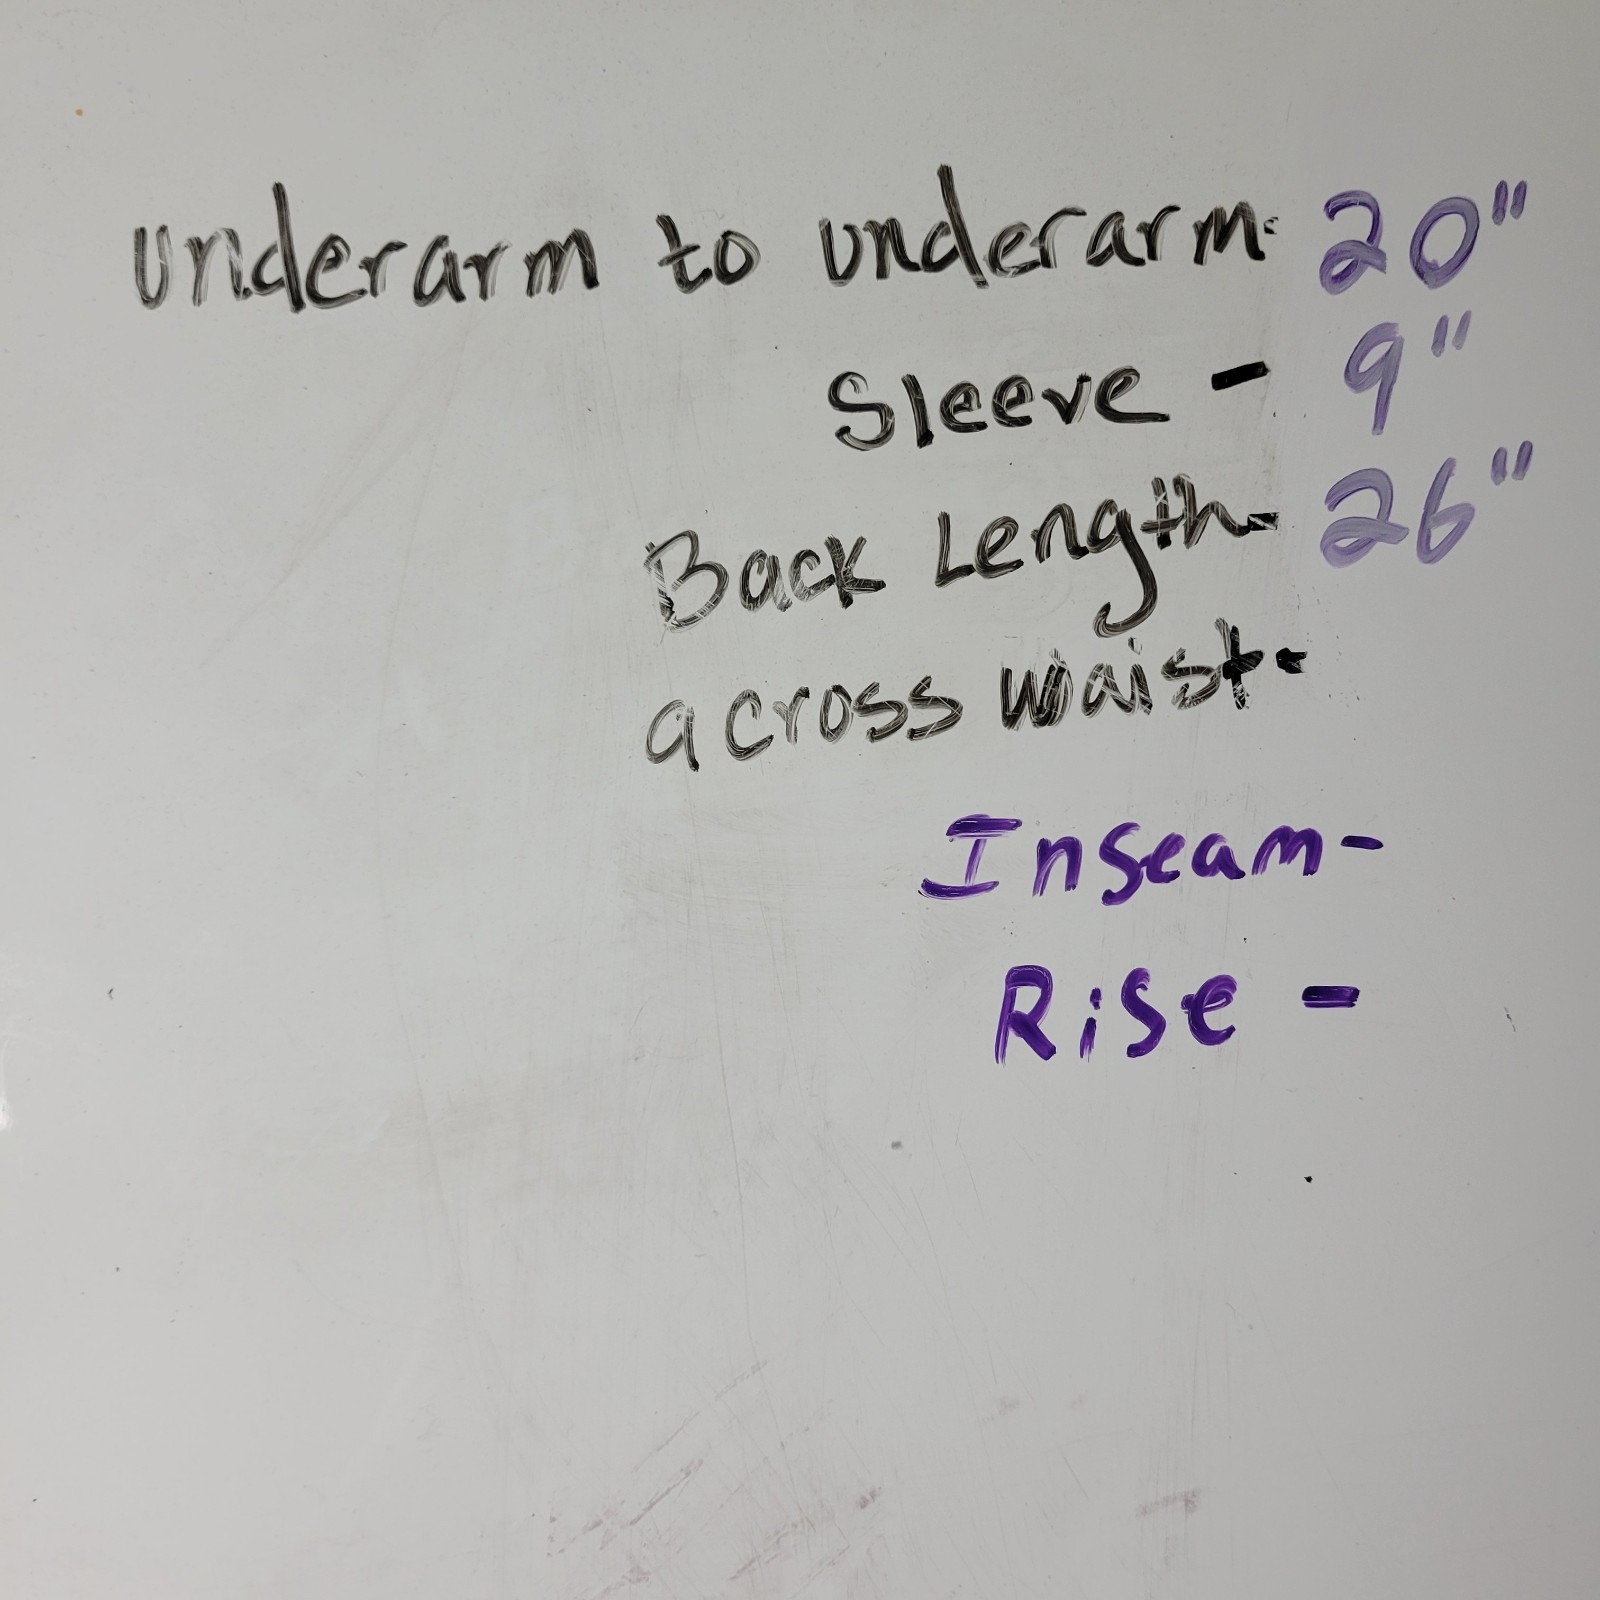 underarm to underarm- 20"
Sleeve - 9"
Back Length- 26"
across waist-
Inseam-
Rise -